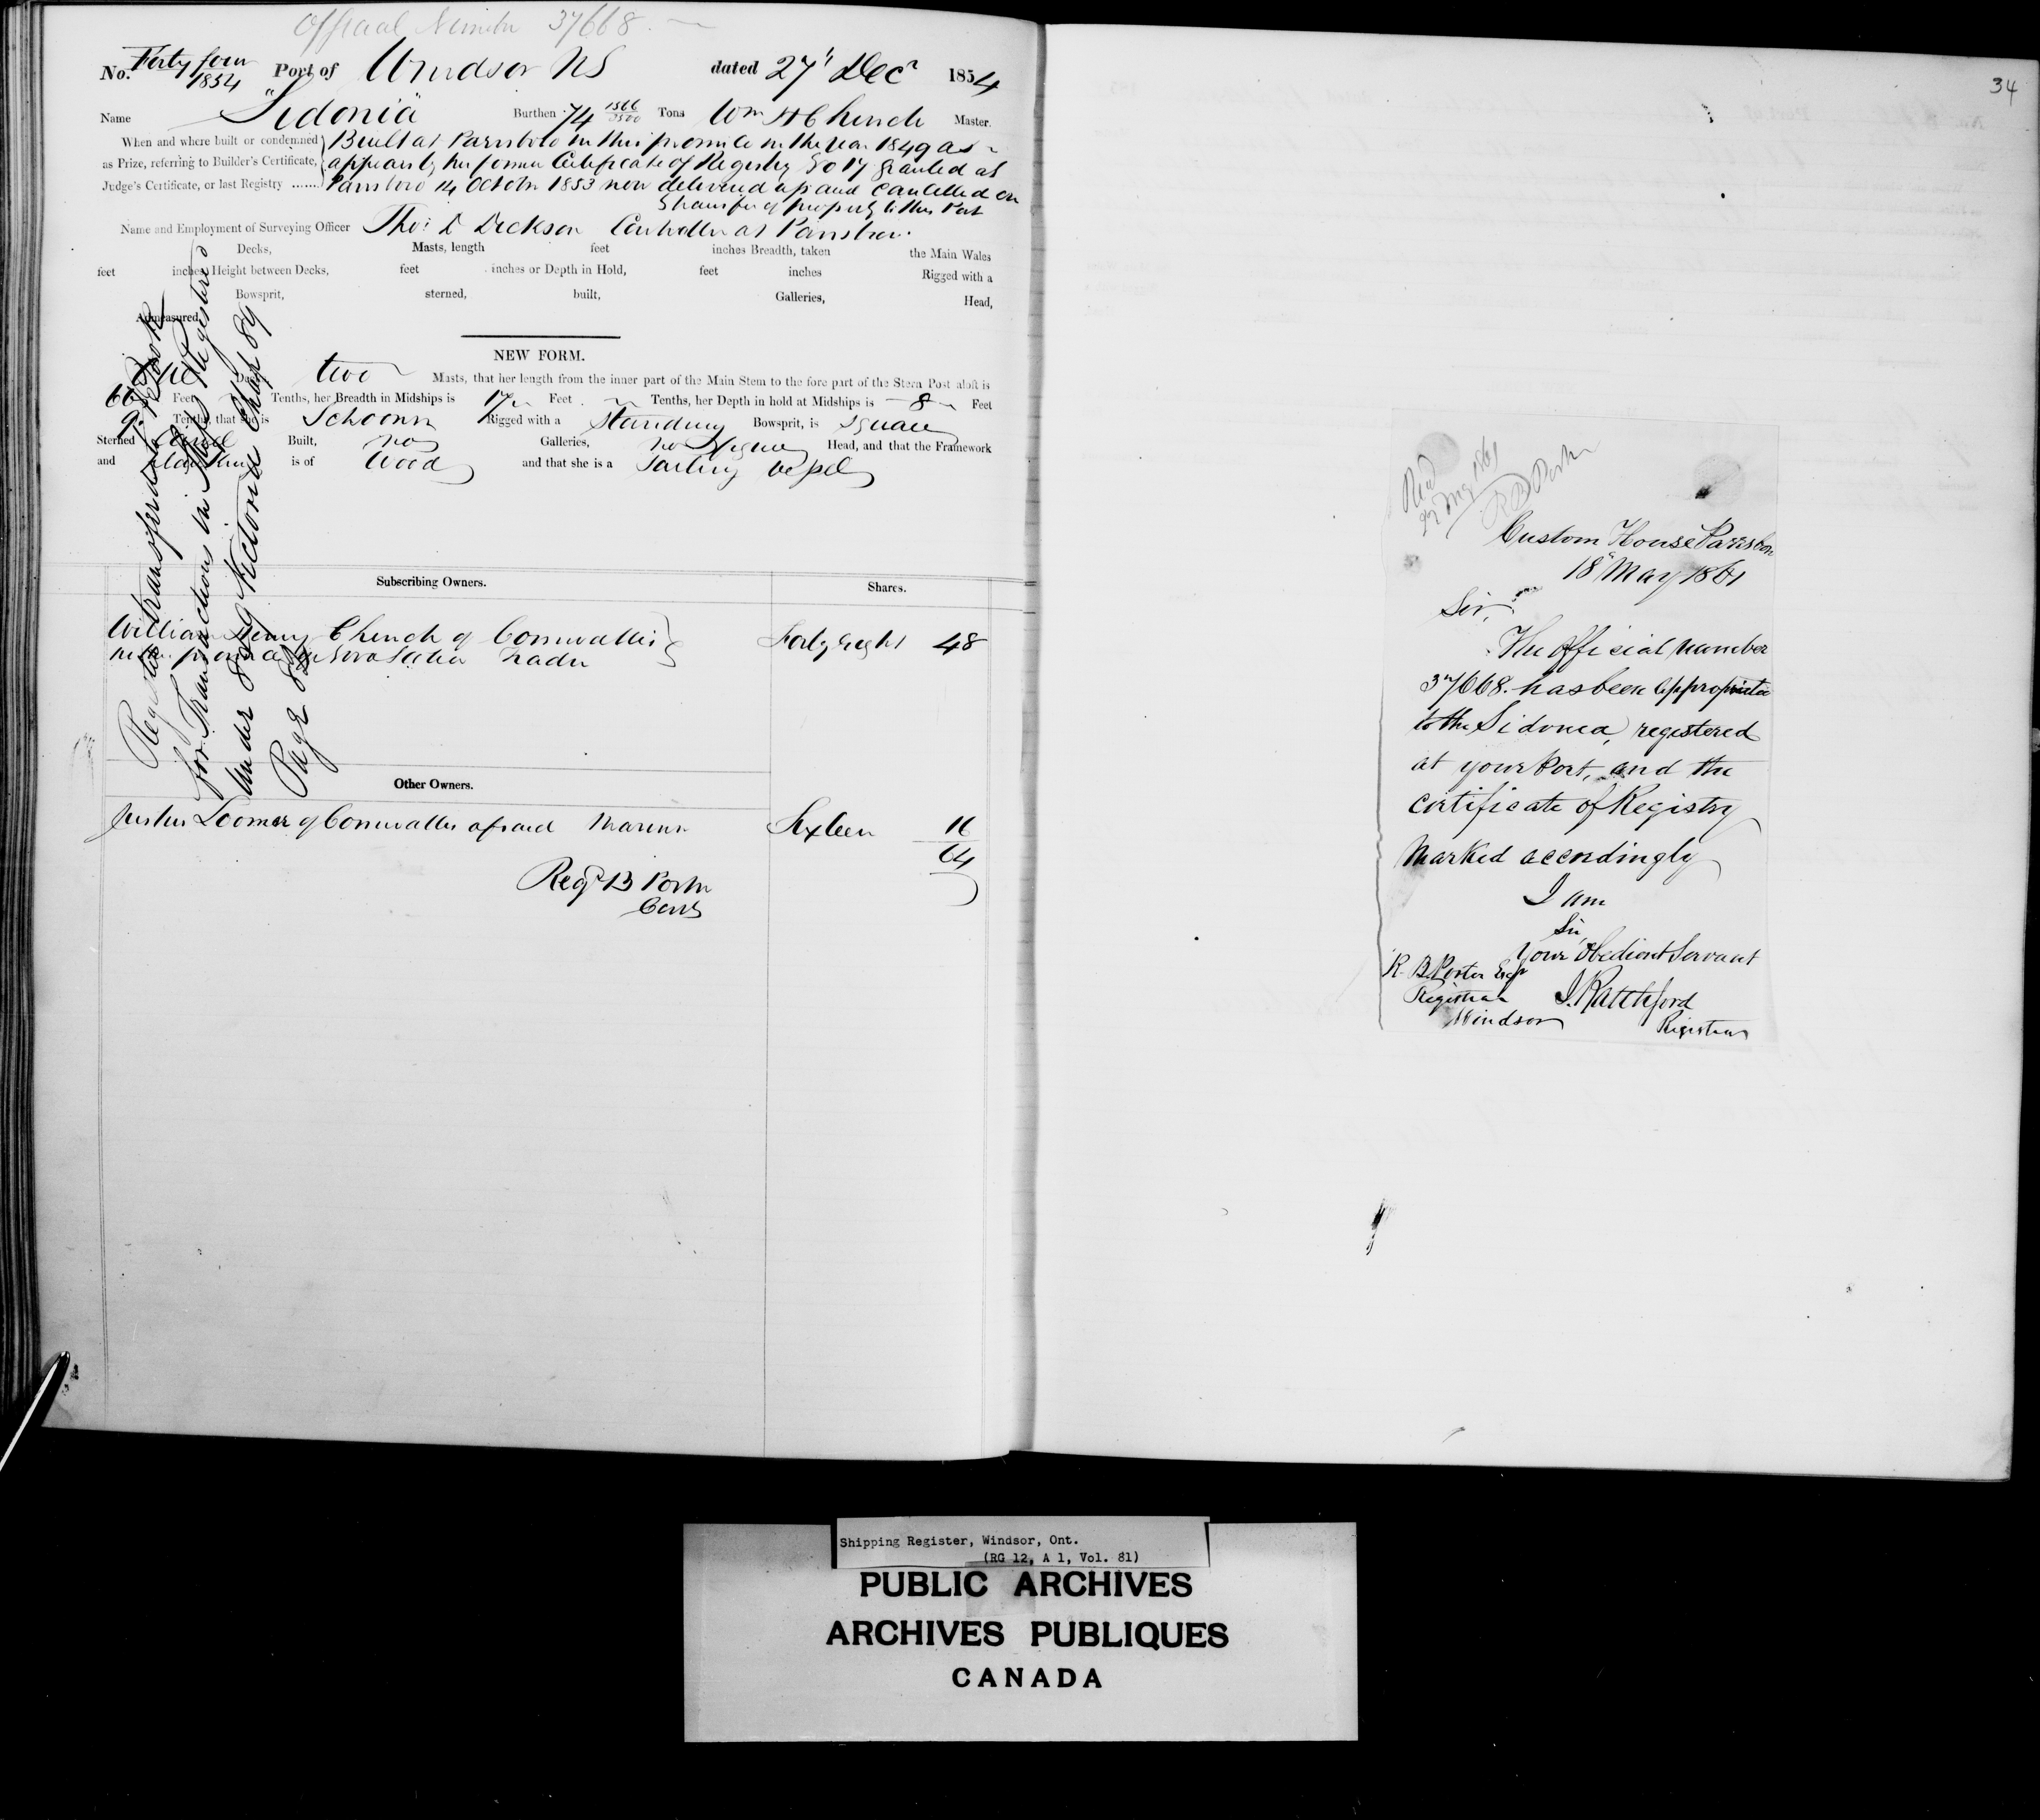 Official Number 37668.
No. Forty four 1854 Port of Windsor NS dated 27" Decr 1854
Name "Sidonia" Burthen 74 1566/3500 Tons Wm H Church Master.
When and where built or condemned Built at Parrsboro in this province in the year 1849 as
as Prize, referring to Builder's Certificate, appears by her former Certificate of Registry No 17 granted at
Judge's Certificate, or last Registry ...... Parrsboro 14 October 1853 now delivered up and Cancelled on
transfer of property to this Port
Name and Employment of Surveying Officer Thos D Dickson Controller at Parrsboro.
Decks, Masts, length feet inches Breadth, taken the Main Wales
feet inches Height between Decks, feet inches or Depth in Hold, feet inches Rigged with a
Bowsprit, sterned, built, Galleries, Head,
Admeasured,
NEW FORM.
One Deck two Masts, that her length from the inner part of the Main Stem to the fore part of the Stern Post aloft is
Feet Tenths, her Breadth in Midships is 17 Feet Tenths, her Depth in hold at Midships is 8 Feet
9 Tenths, that she is Schooner Rigged with a Standing Bowsprit, is Square
Sterned Carvel Built, no Galleries, no Figure Head, and that the Framework
and Planking is of Wood and that she is a Sailing vessel
Register transferred to Book
for Transactions in Ships Registered
under 8 & 9 Victoria Chap 89
Page 82
Subscribing Owners. Shares.
William Henry Church of Cornwallis Forty eight 48
in the province of Nova Scotia Trader
Other Owners.
Justus Loomer of Cornwallis aforsaid Mariner Sixteen 16
64
R B Porter
34
1861
R B Porter
Custom House Parrsboro
18" May 1861
Sir,
The official number
37668. has been appropriated
to the Sidonia, registered
at your Port, and the
certificate of Registry
Marked accordingly
I am
Sir,
Your Obedient Servant
R. B. Porter Esqr
Registrar
Windsor
Registrar
Shipping Register, Windsor, Ont.
(RG 12, A 1, Vol. 81)
PUBLIC ARCHIVES
ARCHIVES PUBLIQUES
CANADA